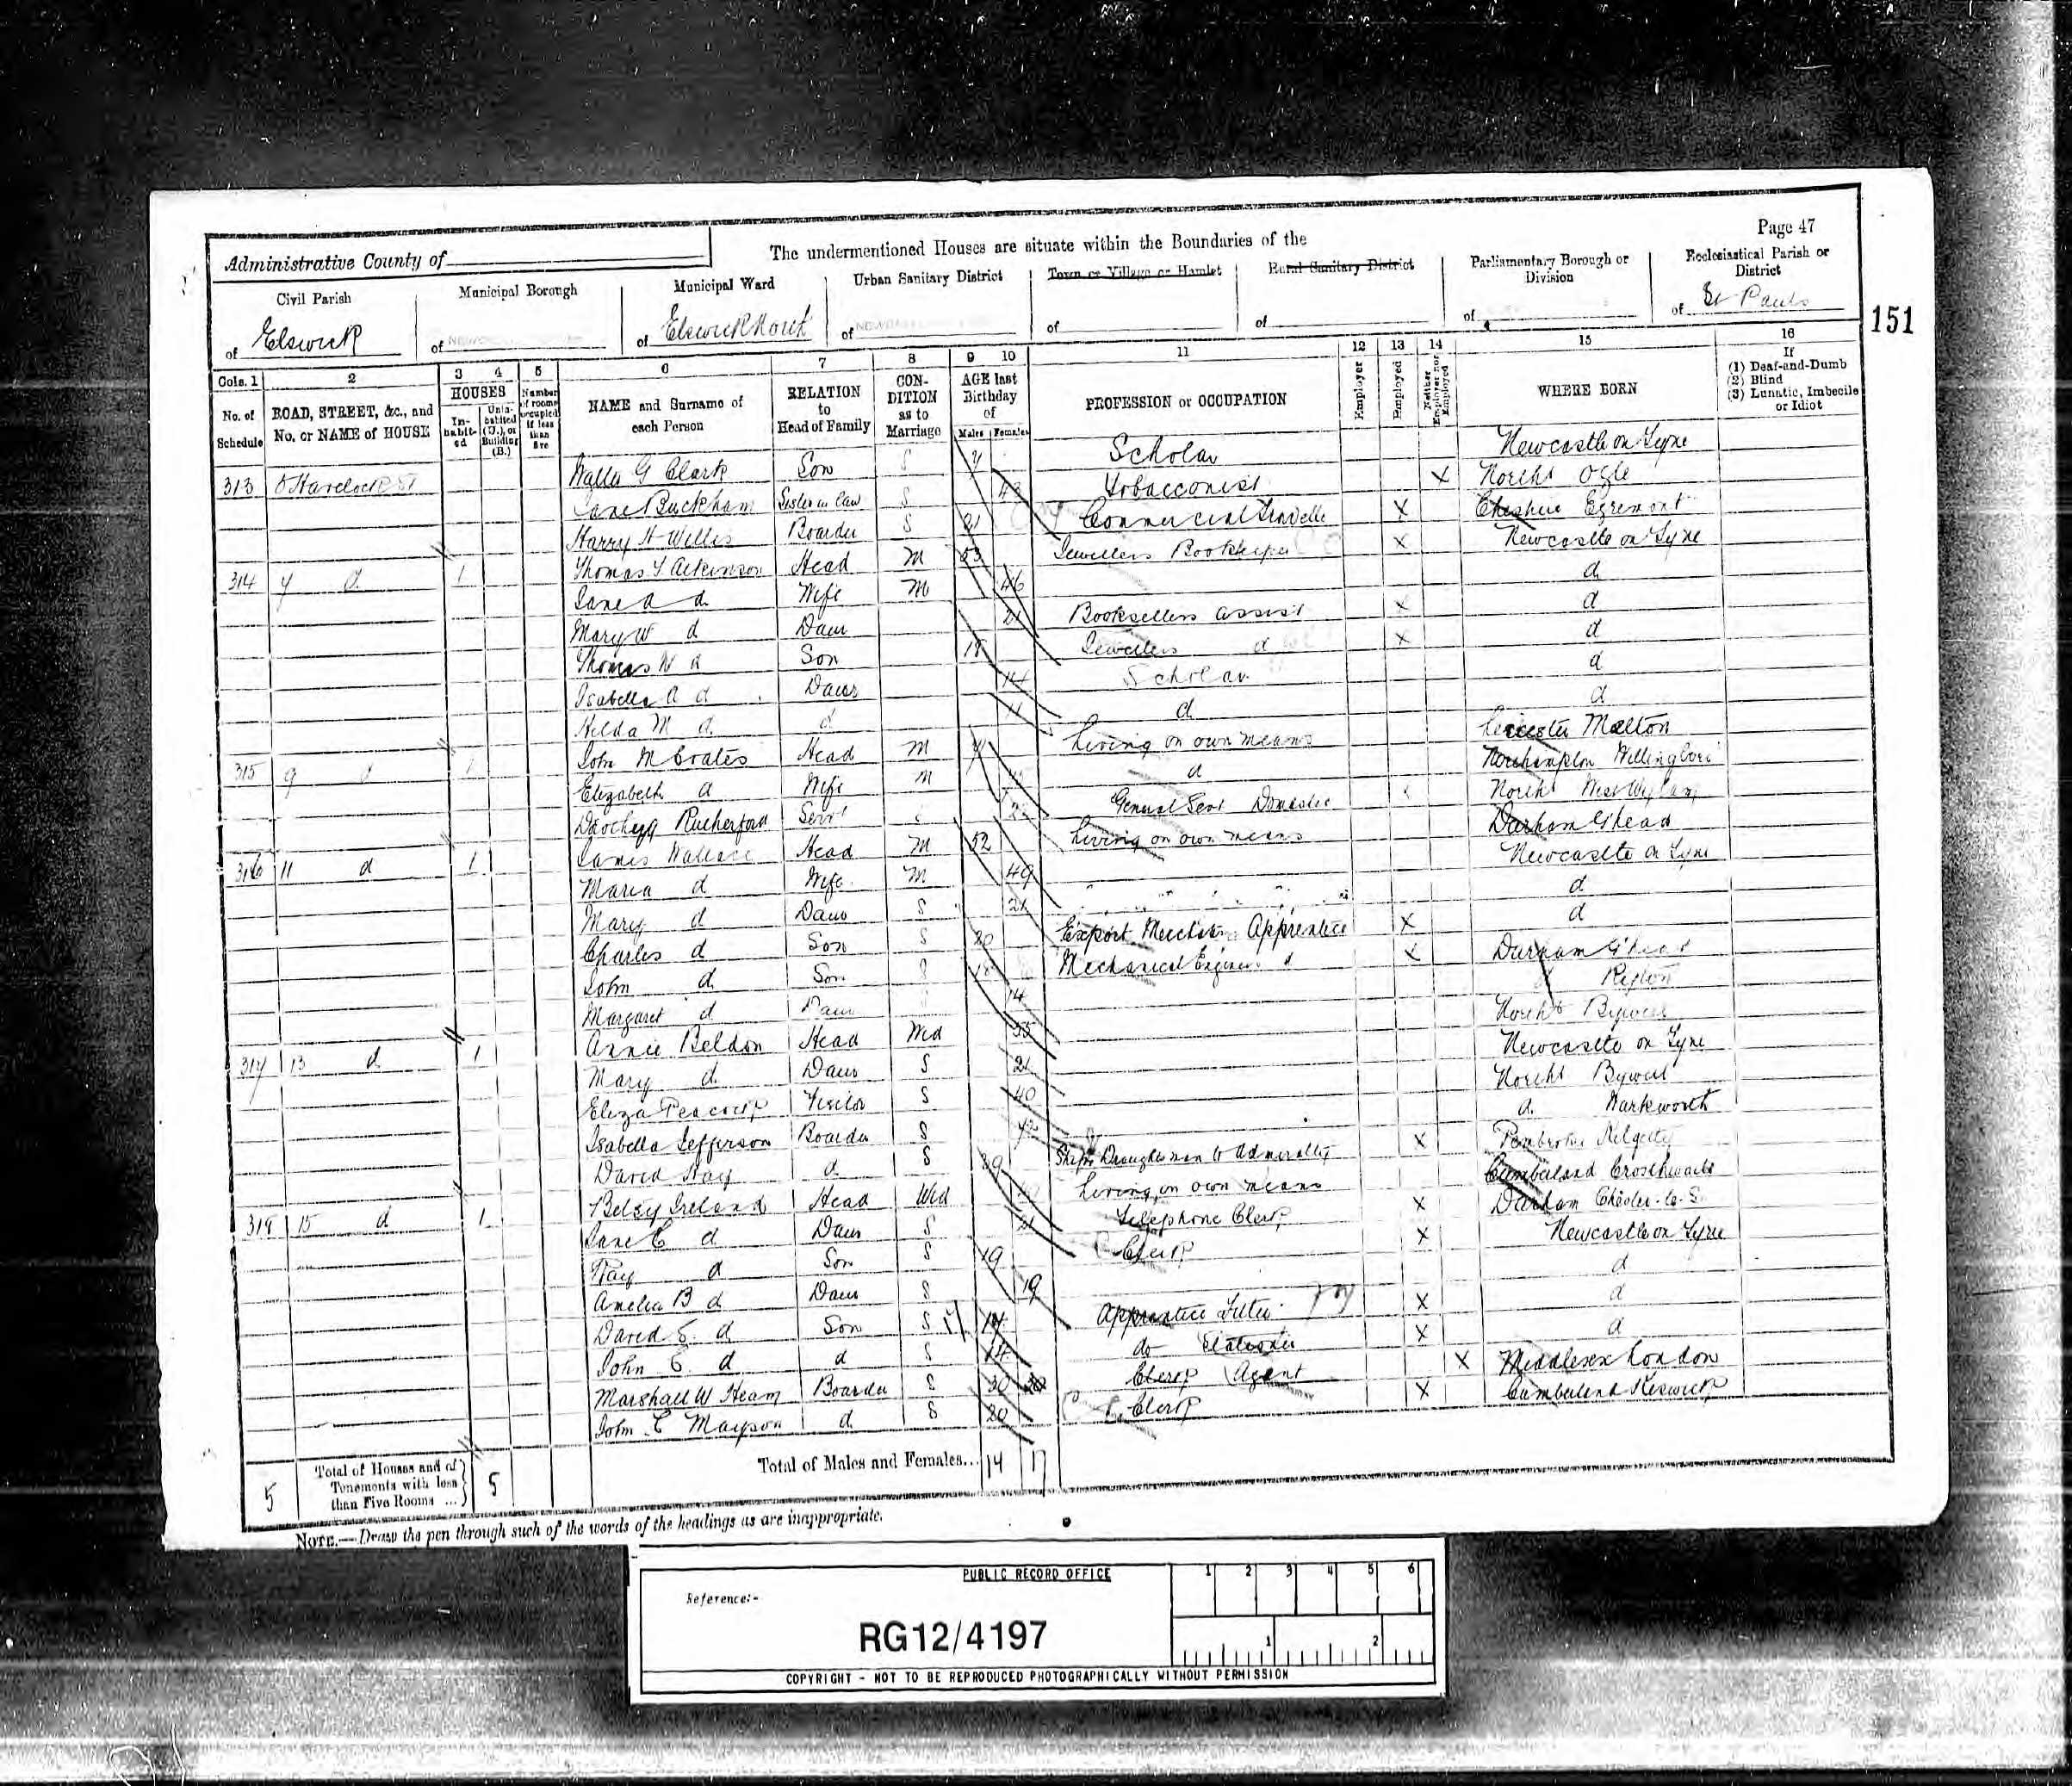 Page 47
The undermentioned Houses are situate within the Boundaries of the
Administrative County of
Civil Parish
of Elswick
Municipal Borough
of
Municipal Ward
of Elswick North
Urban Sanitary District
of
Town or Village or Hamlet
of
Rural Sanitary District
of
Parliamentary Borough or Division
of
Ecclesiastical Parish or District
of St Pauls
151
Cols. 1 2 3 4 5 6 7 8 9 10 11 12 13 14 15 16
No. of Schedule
ROAD, STREET, &c., and No. or NAME of HOUSE
HOUSES
In-habit-ed
Unin-habited (U.), or Building (B.)
Number of rooms occupied if less than five
NAME and Surname of each Person
RELATION to Head of Family
CON-DITION as to Marriage
AGE last Birthday of
Males Females
PROFESSION or OCCUPATION
Employer
Employed
Neither Employer nor Employed
WHERE BORN
If
(1) Deaf-and-Dumb
(2) Blind
(3) Lunatic, Imbecile or Idiot
313 Havelock St Walter G Clark Son S Scholar Newcastle on Tyne
Jane Buckham Sister in law S 43 Tobacconist X Northd Ogle
Harry H Willis Boarder S 21 Commercial Traveller X Cheshire Egremont
314 7 d 1 Thomas Y Atkinson Head M 53 Jewellers Bookkeeper X Newcastle on Tyne
Jane A d Wife M 46 d
Mary W d Daur 21 Booksellers assist X d
Thomas W d Son 18 Jewellers d X d
Isabella A d Daur 14 Scholar d
Hilda M d d 11 d d
315 9 d 1 John M Coates Head M Living on own means Leicester Melton
Elizabeth d Wife M d Northampton
Dorothy Rutherford Servt General Servt Domestic Northd West Wylam
316 11 d 1 James Wallace Head M 52 Living on own means Durham Ghead
Maria d Wife M 49 Newcastle on Tyne
Mary d Daur S 21 d
Charles d Son S 20 Export Merchants Apprentice X d
John d Son Mechanical Engineer d X Durham Ghead
Margaret d Daur 14 Ryton
317 13 d 1 Annie Beldon Head Wd 55 Northd Bywell
Mary d Daur S 21 Newcastle on Tyne
Eliza Peacock Visitor S 40 Northd Bywell
Isabella Jefferson Boarder S d Warkworth
David Hay d S 39 Ships Draughtsman to Admiralty X Pembroke
318 15 d 1 Betsy Ireland Head Wd Living on own means Cumberland Crosthwaite
Jane E d Daur S 21 Telephone Clerk X Durham Chester-le-S
Hay d Son S 19 Clerk X Newcastle on Tyne
Amelia B d Daur S 19 d
David E d Son S Apprentice Fitter X d
John E d d S 14 do Stationer X d
Marshall W Heam Boarder S 30 Clerk Agent X Middlesex London
John C Mayson d S 20 Clerk X Cumberland Keswick
5
Total of Houses and of Tenements with less than Five Rooms ...
5
Total of Males and Females... 14 17
NOTE.—Draw the pen through such of the words of the headings as are inappropriate.
PUBLIC RECORD OFFICE
Reference:-
RG12/4197
1 2 3 4 5 6
1 2
COPYRIGHT - NOT TO BE REPRODUCED PHOTOGRAPHICALLY WITHOUT PERMISSION